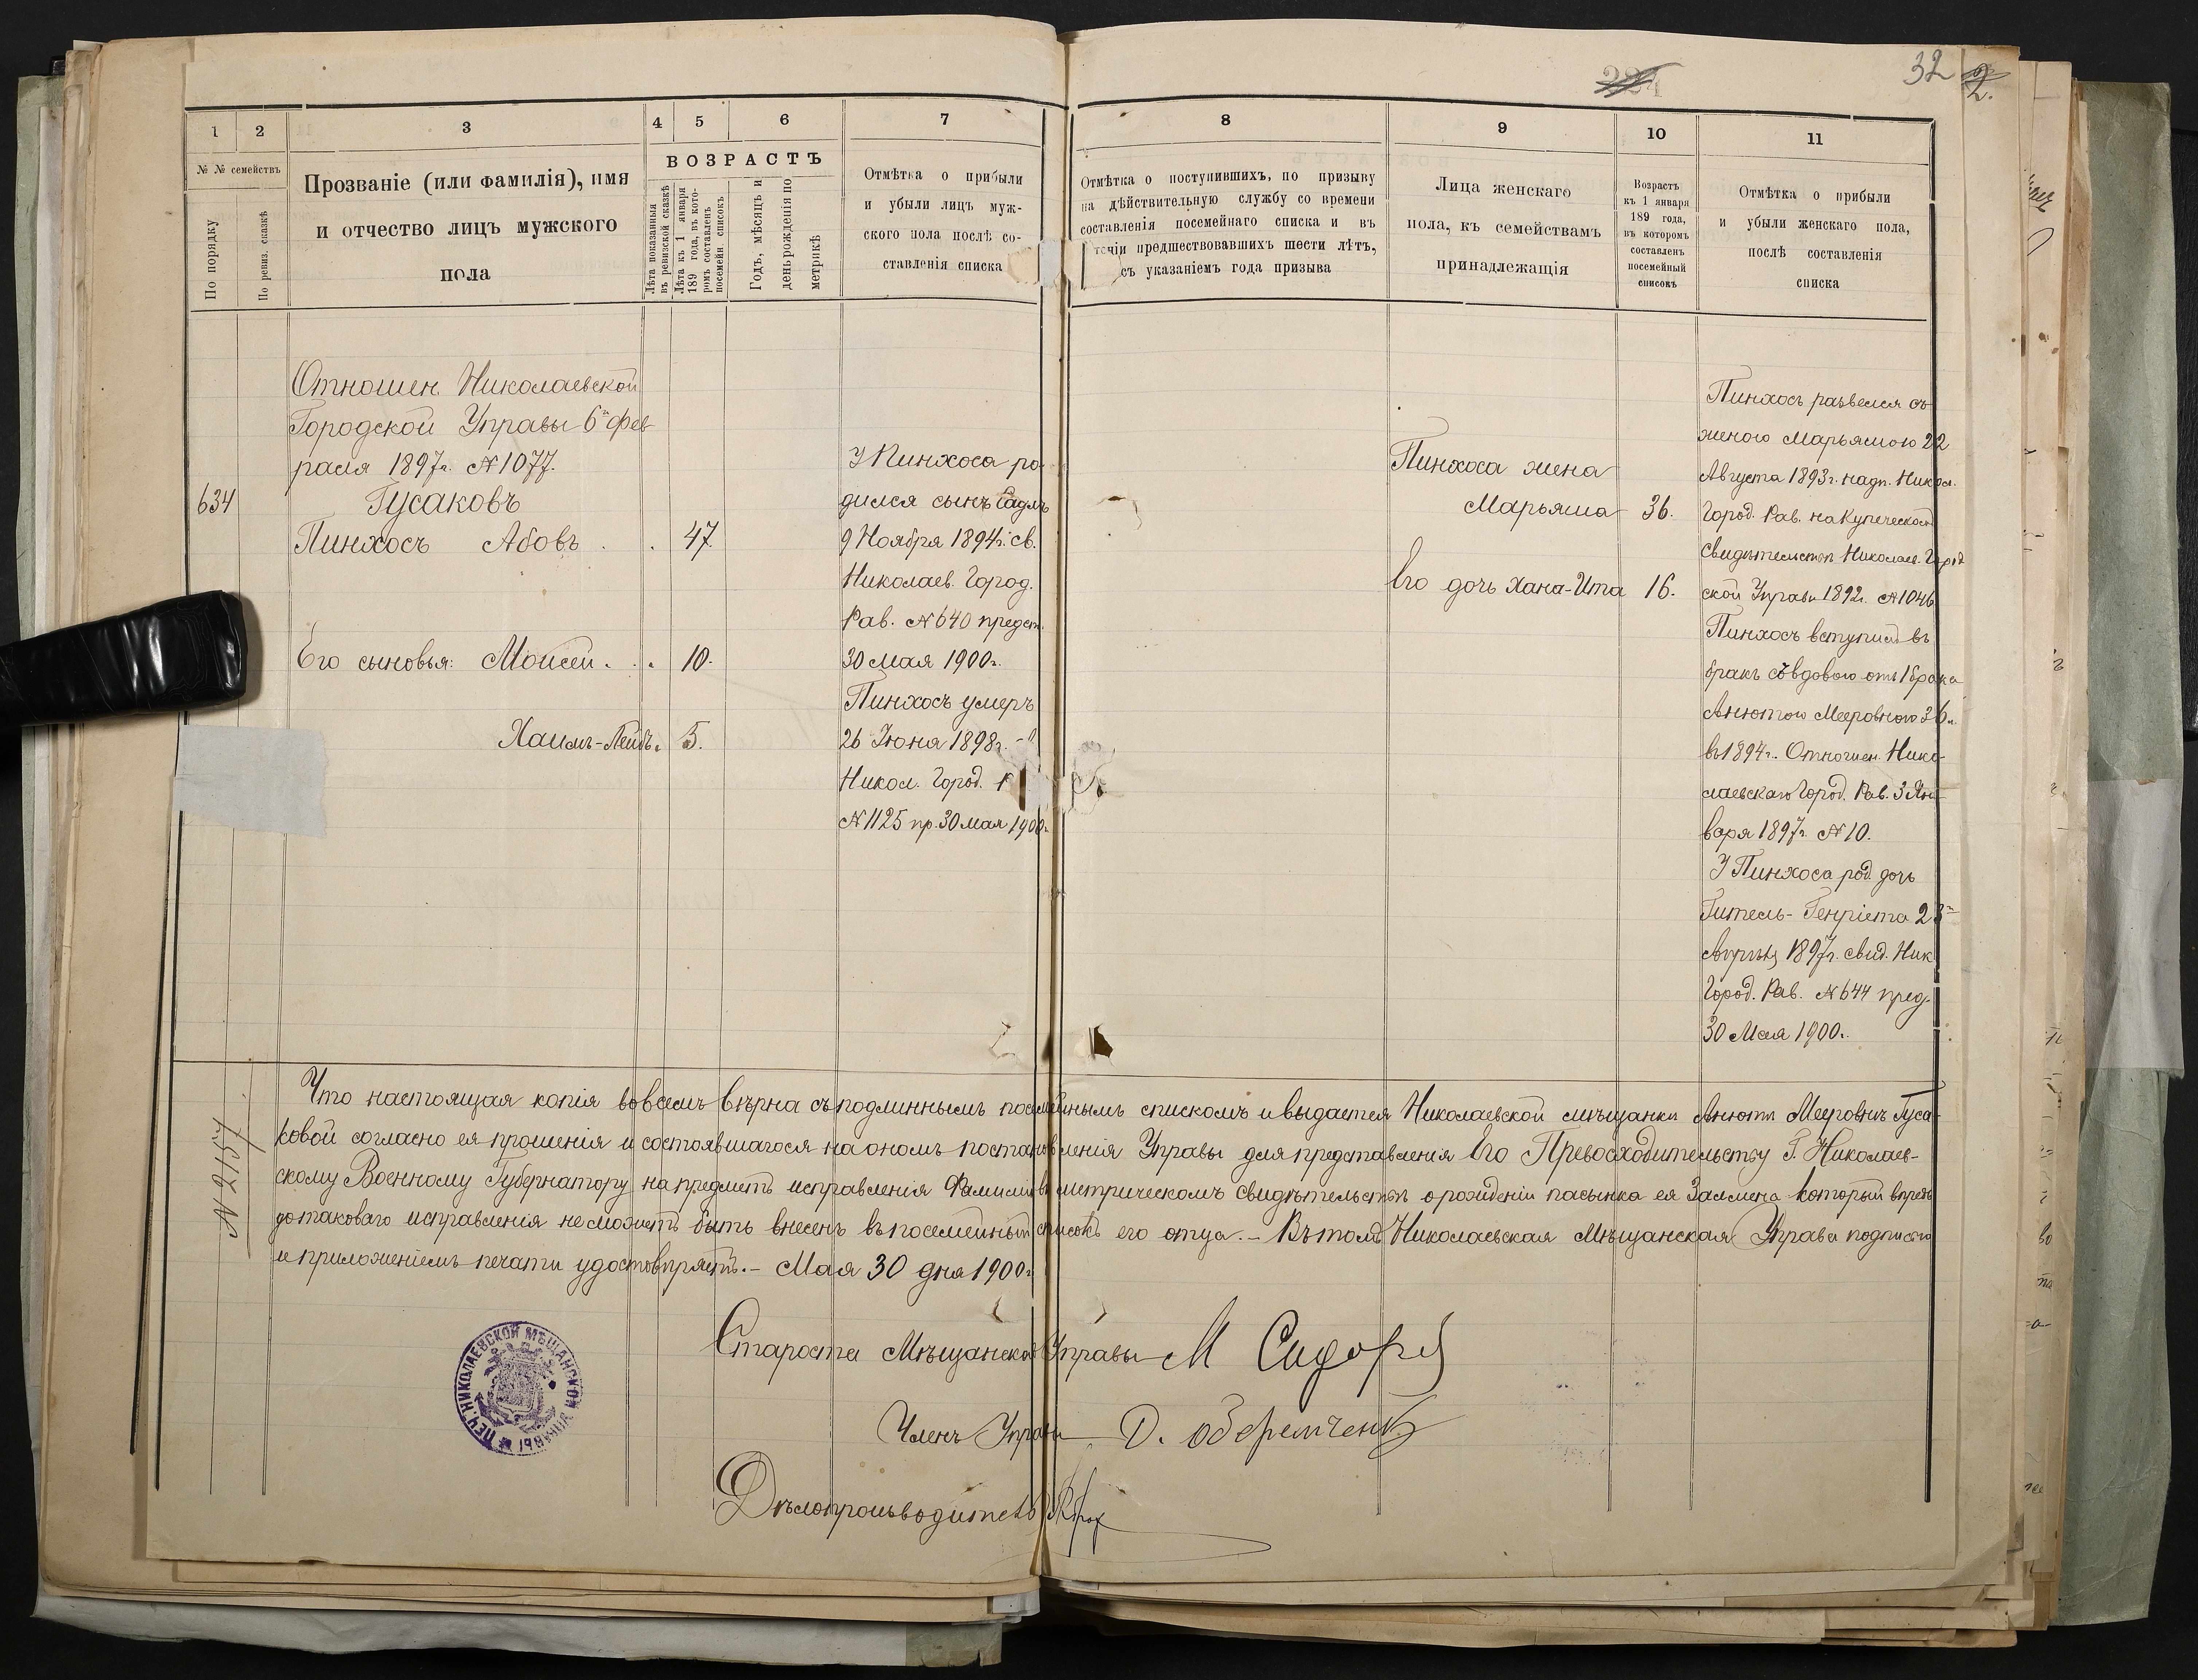 32
2.
1
2
3
4
5
6
7
8
9
10
11
№ № семействъ
По порядку
По ревиз. сказкѣ
Прозваніе (или фамилія), имя
и отчество лицъ мужского
пола
ВОЗРАСТЪ
Лѣта показанныя
въ ревизской сказкѣ
Лѣта къ 1 января
189 года, въ кото-
ромъ составленъ
посемейн. списокъ
Годъ, мѣсяцъ и
день рожденія по
метрикѣ
Отмѣтка о прибыли
и убыли лицъ муж-
ского пола послѣ со-
ставленія списка
Отмѣтка о поступившихъ, по призыву
на дѣйствительную службу со времени
составленія посемейнаго списка и въ
течіи предшествовавшихъ шести лѣтъ,
съ указаніемъ года призыва
Лица женскаго
пола, къ семействамъ
принадлежащія
Возрастъ
къ 1 января
189 года,
въ которомъ
составленъ
посемейный
списокъ
Отмѣтка о прибыли
и убыли женскаго пола,
послѣ составленія
списка
Отношен. Николаевской
Городской Управы 6го фев-
раля 1897г. № 1077.
634 Гусаковъ
Пинхосъ Абовъ . . 47
Его сыновья: Моисей . . . 10.
Хаимъ-Лейбъ. 5.
У Пинхоса ро-
дился сынъ
9 Ноября 1894г. св.
Николаев. Город.
Рав. № 640 предст.
30 Мая 1900г.
Пинхосъ умеръ
26 Іюня 1898г.
Никол. Город.
№ 1125 пр. 30 Мая 1900г.
Пинхоса жена
Марьяша 36.
Его дочь Хана-Ита 16.
Пинхосъ развелся съ
женою Марьяшою 22
Августа 1893г. надп. Никол.
Город. Рав. на Купеческомъ
Свидѣтельствѣ Николаев. Город
ской Управы 1892г. № 1046
Пинхосъ вступилъ въ
бракъ съ вдовою отъ 1 брака
Анютою Мееровною 36 л.
въ 1894г. Отношен. Нико-
лаевскаго Город. Рав. 3 Ян-
варя 1897г. № 10.
У Пинхоса род. дочь
Гитель-Генріета 23го
1897г. свид. Ник
Город. Рав. № 644 пред.
30 Мая 1900г.
№ 2157
Что настоящая копія во всемъ вѣрна съ подлиннымъ посемейнымъ спискомъ и выдается Николаевской мѣщанкѣ Анютѣ Мееровнѣ Гуса-
ковой согласно ея прошенія и состоявшагося на ономъ постановленія Управы для представленія Его Превосходительству Г. Николаев-
скому Военному Губернатору на предметъ исправленія Фамиліи въ метрическомъ свидѣтельствѣ о рожденіи пасынка ея Залмена который впредь
до таковаго исправленія не можетъ быть внесенъ въ посемейный списокъ его отца. - Въ томъ Николаевская Мѣщанская Управа подписью
и приложеніемъ печати удостовѣряетъ. - Мая 30 дня 1900г.
Староста Мѣщанской Управы М Сидор
Членъ Управы Д.
Дѣлопроизводитель
ПЕЧ. НИКОЛАЕВСКОЙ МѢЩАНСКОЙ УПРАВЫ